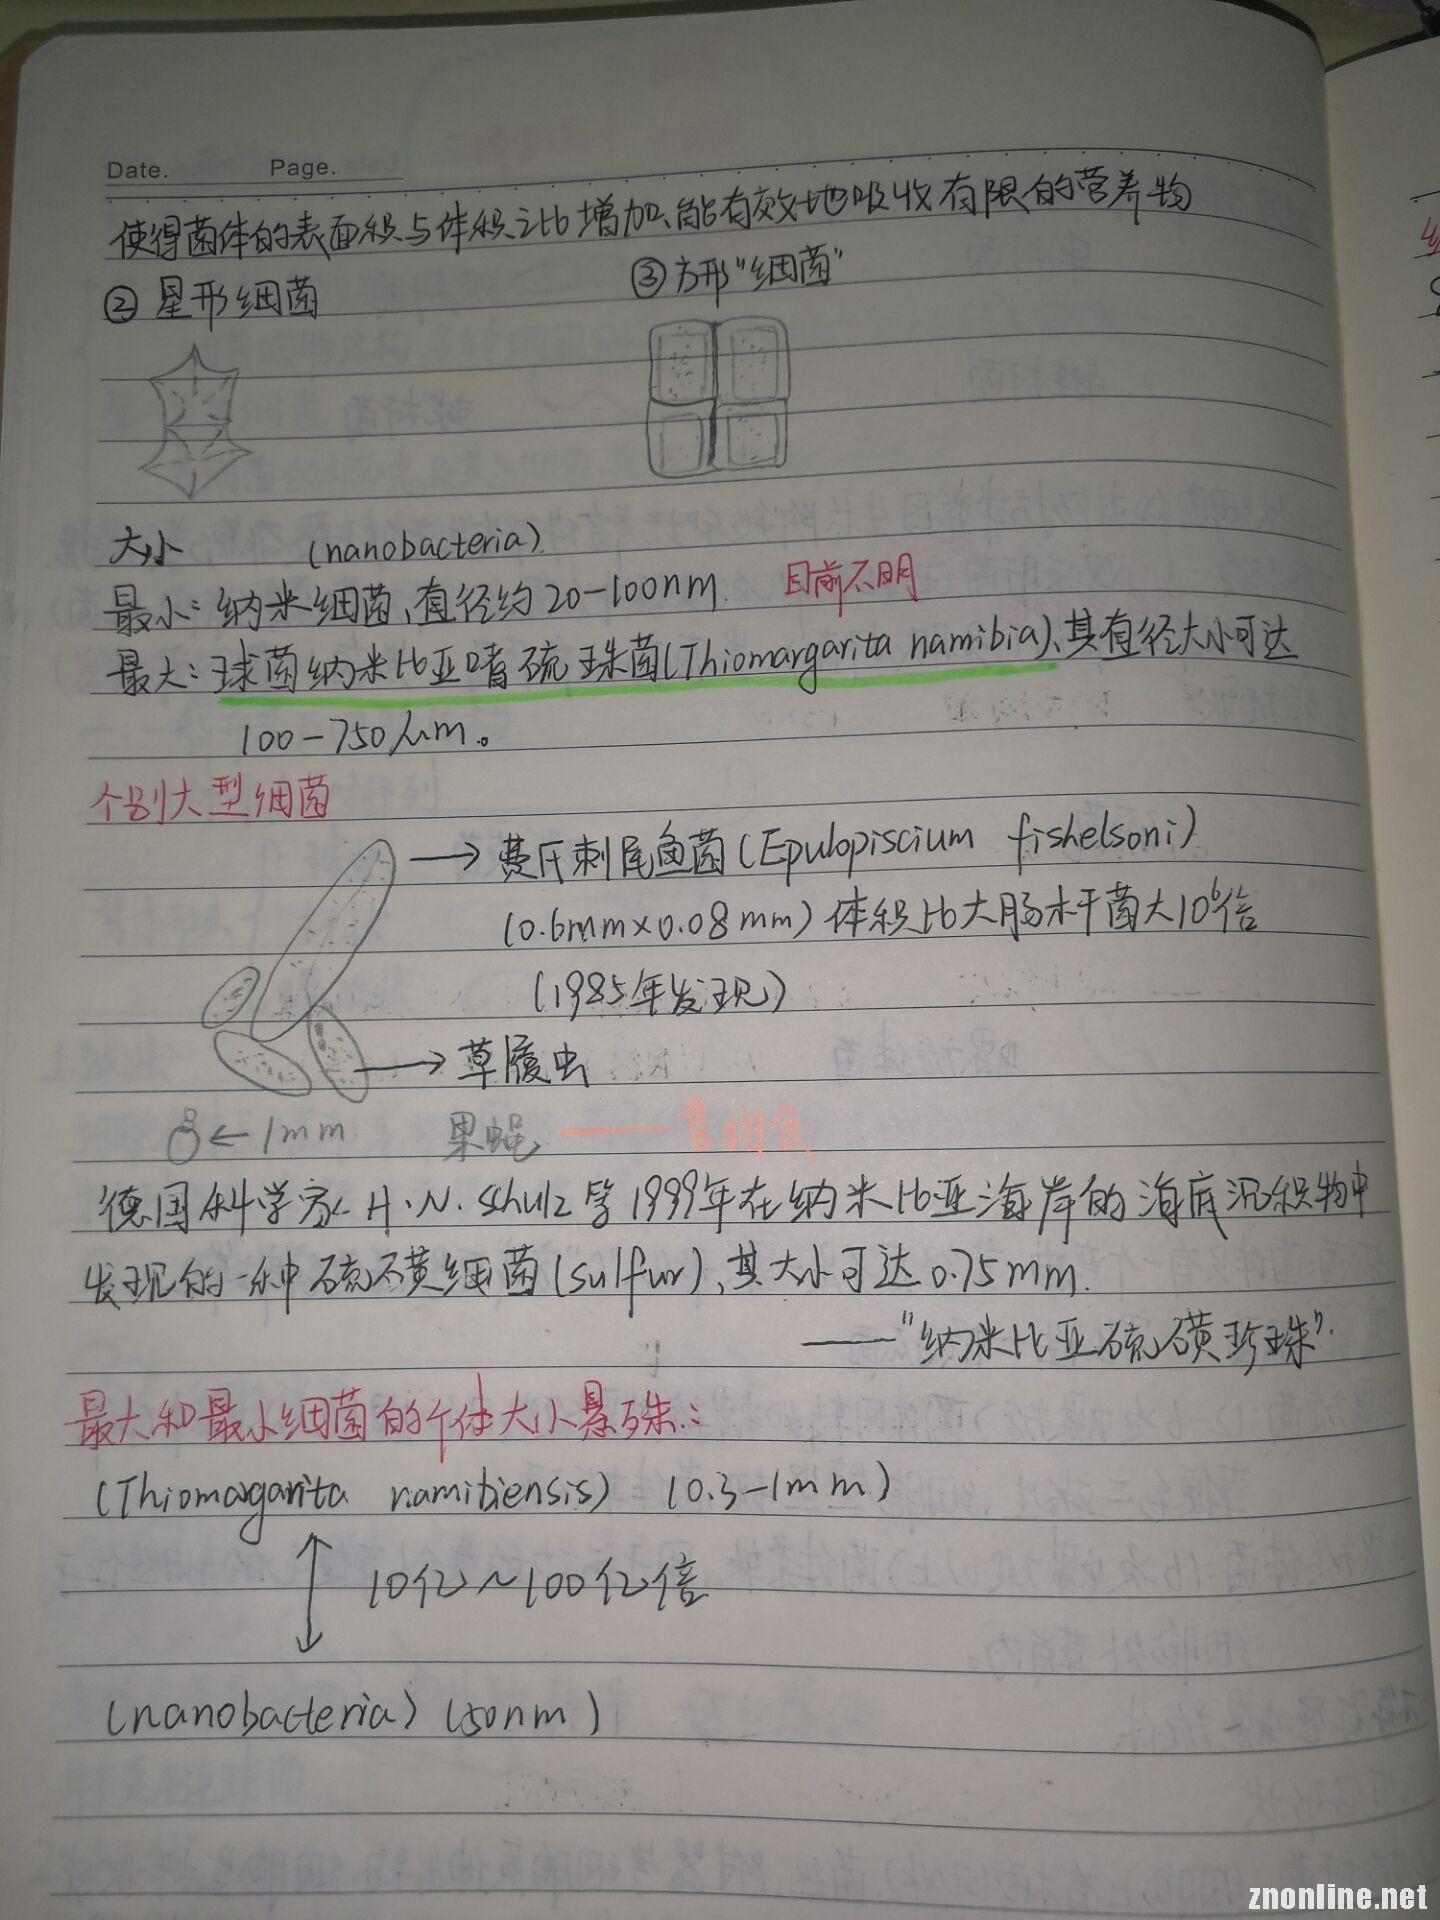 Date. Page.
使得菌体的表面积与体积之比增加,能有效地吸收有限的营养物
② 星形细菌 ③方形"细菌"
大小 (nanobacteria)
最小:纳米细菌,直径约20-100nm. 目前不明
最大:球菌纳米比亚嗜硫珠菌(Thiomargarita namibia),其直径大小可达
100-750μm。
个别大型细菌
→费氏刺尾鱼菌(Epulopiscium fishelsoni)
(0.6mm×0.08mm)体积比大肠杆菌大10⁶倍
(1985年发现)
→草履虫
←1mm 果蝇
德国科学家 H.N.Schulz等1999年在纳米比亚海岸的海底沉积物中
发现的一种硫磺细菌(sulfur),其大小可达0.75mm.
——"纳米比亚硫磺珍珠".
最大和最小细菌的个体大小悬殊:
(Thiomargarita namibiensis) (0.3-1mm)
10亿~100亿倍
(nanobacteria) (50nm)
znonline.net